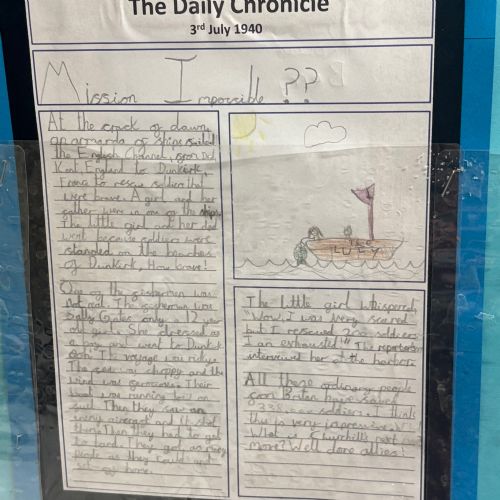 The Daily Chronicle
3rd July 1940
Mission Impossible ??
At the crack of dawn,
an armarda of ships sailed
the English Channel, from
Kent, England to Dunkirk,
France to rescue soldiers that
were brave. A girl and her
father were in one of the ships
The little girl and her dad
went because soldiers were
stranded on the beaches
of Dunkirk. How brave!
One of the fishermen was
not real. The fisherman was
Sally Gates only 12 year
old girl. She dressed as
a boy and went to Dunkirk
The voyage was
The sea was choppy and the
wind was Their
boat was running on
fuel. Then they saw an
aircraft and it shot
them. Then they had to get
to land. They got as many
people as they could and
set of home.
THE
LUCY
The little girl whispered,
"Wow, I was very scared
but I rescued soldiers
I am exhausted!" The reporters
interviewed her at the harbor.
All these ordinary people
from Britain have saved
soldiers. I think
this is very impressive.
What is Churchill's next
move? Well done allies!